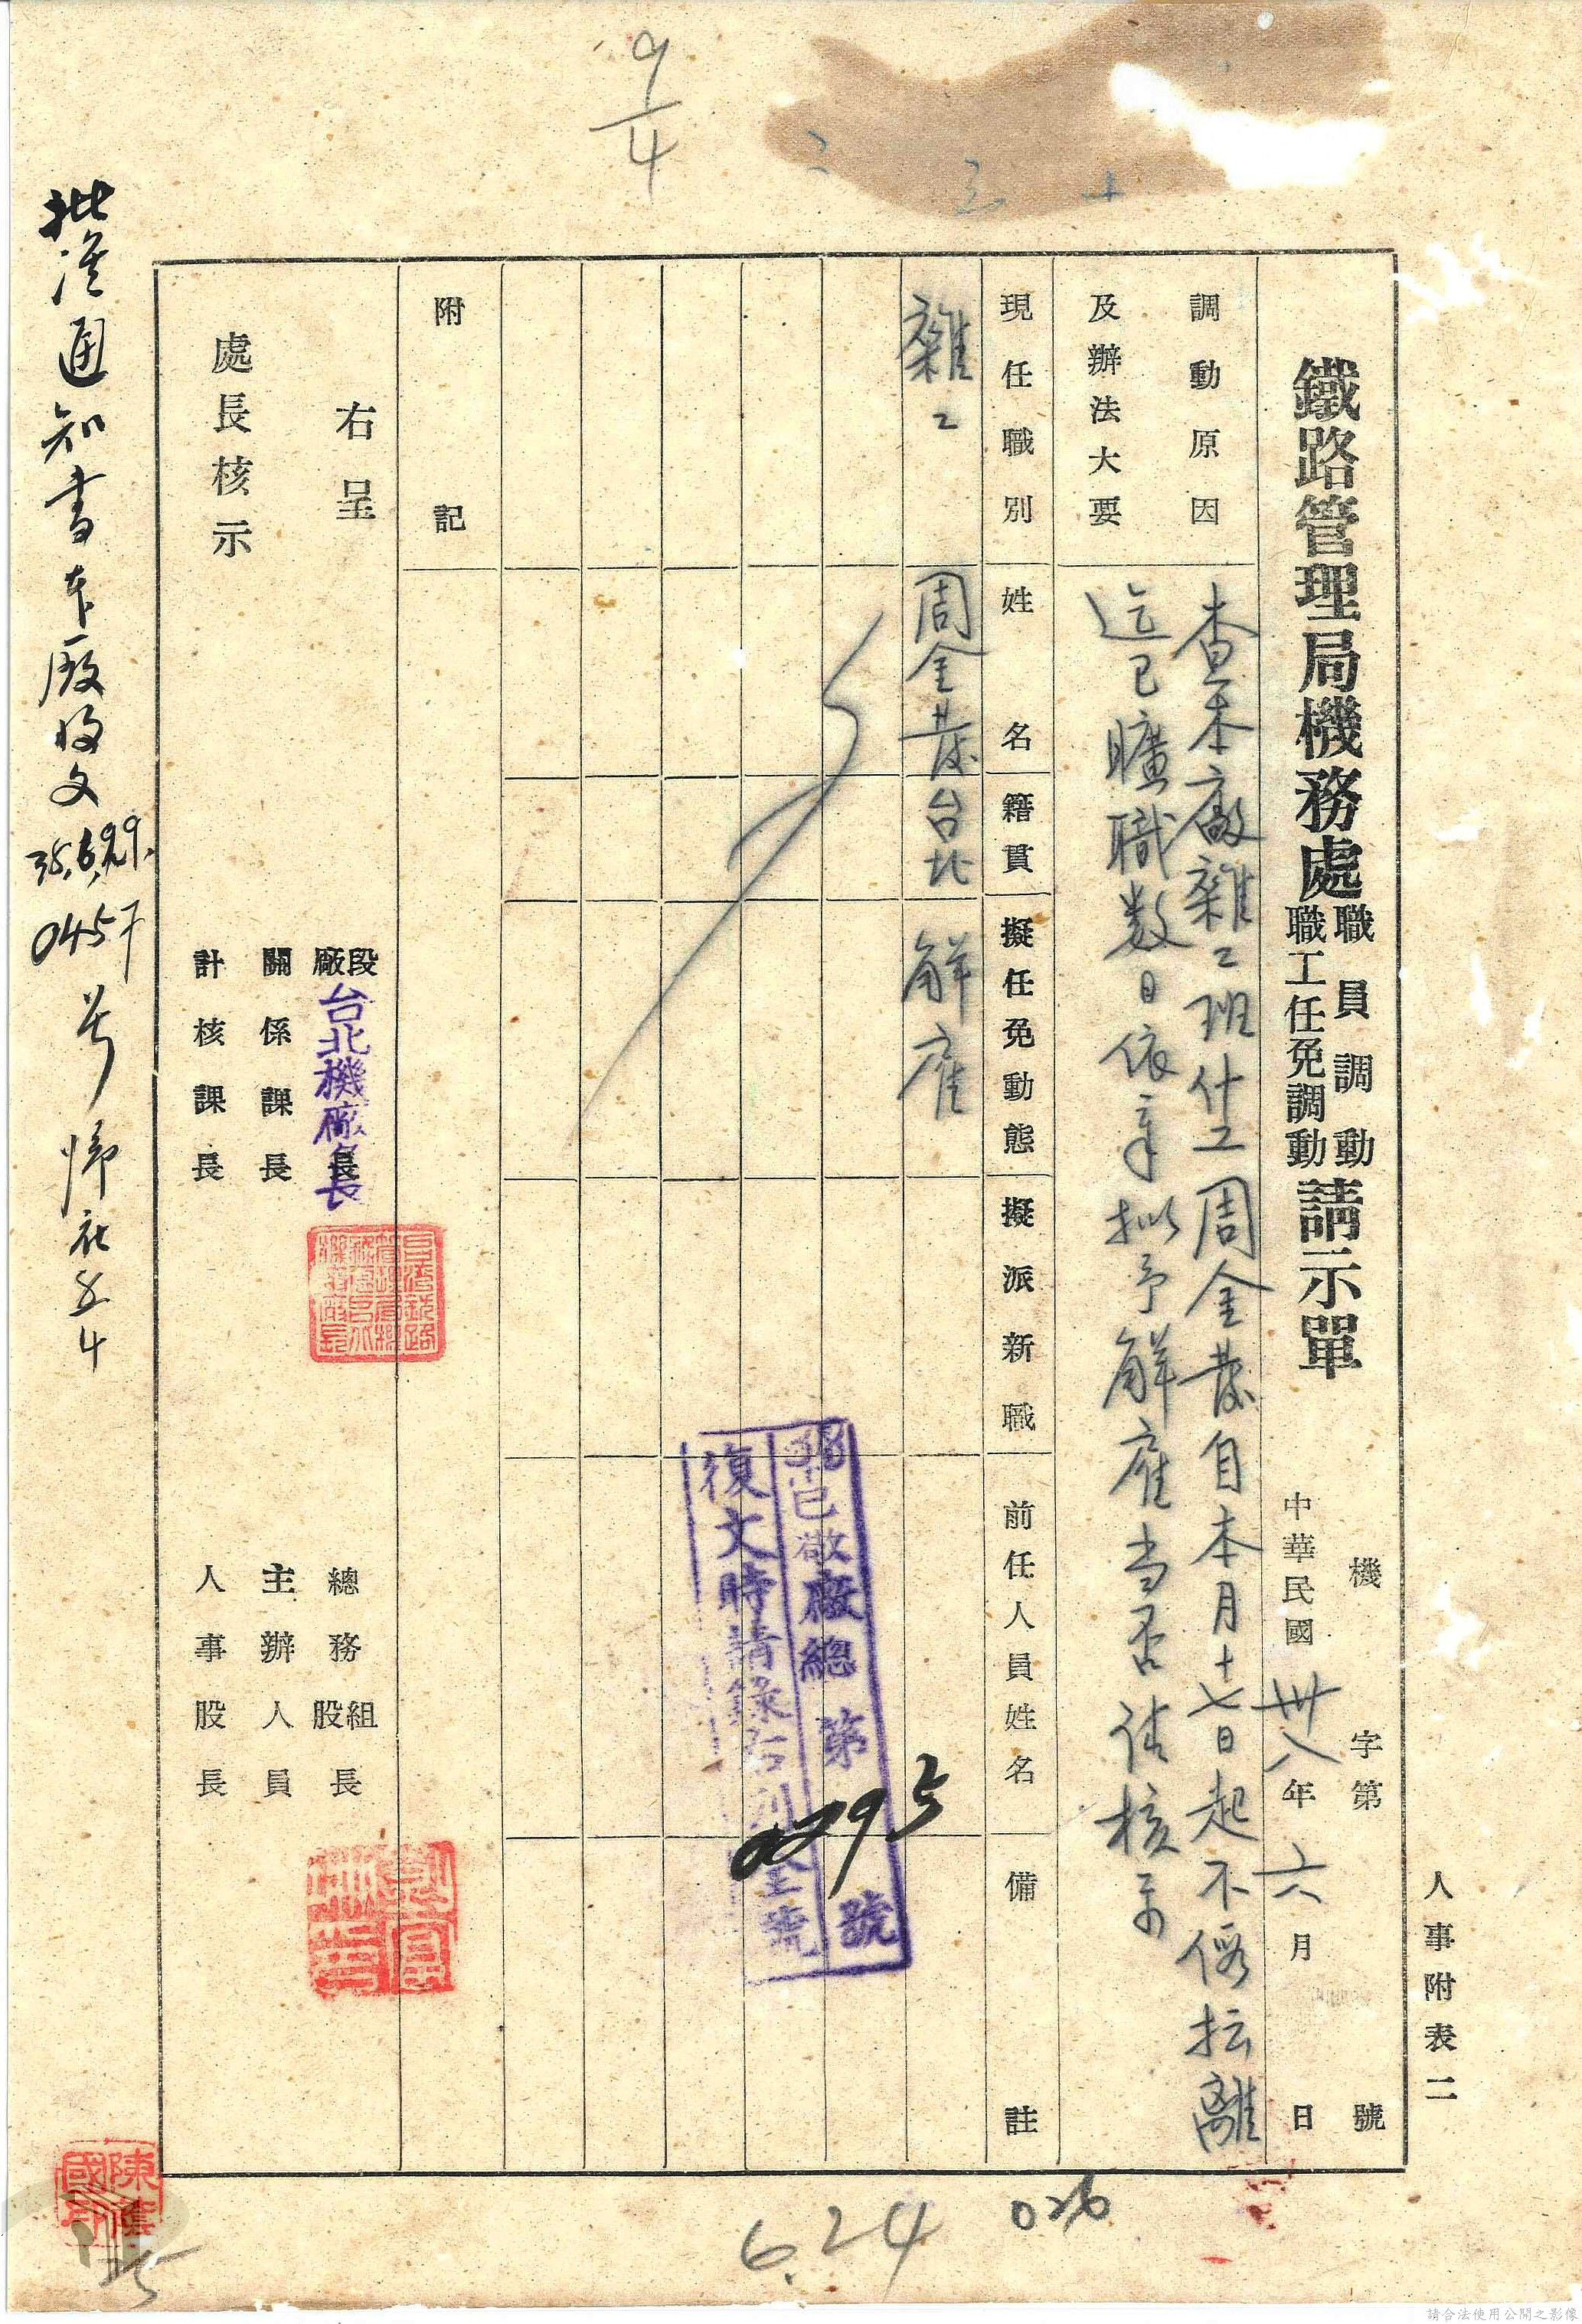 人事附表二
鐵路管理局機務處職員調動職工任免調動請示單
機 字第 號
中華民國卅八年六月 日
調動原因
及辦法大要
查本廠雜工班什工周金發自本月十七日起不假抎離
迄已曠職數日依章拟予解雇当否請核示
現任職別 姓名 籍貫 擬任免動態 擬派新職 前任人員姓名 備註
雜工 周金發 台北 解雇
38 已敬廠總第 號
0295
復文時請錄右列全號
附記
右呈
處長核示
段廠長
台北機廠長
關係課長
計核課長
總務組股長
主辦人員
人事股長
批准通知書本廠收文
0457号
9/4
6.24
026
請合法使用公開之影像